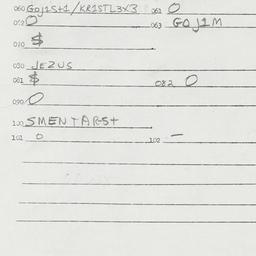 060 Goj1s+1/KR1STL3X3 061 O
062 O 063 GOJ1M
070 $
080 JEZUS
081 $ 082 O
090 O
100 SMENTARS+
101 O 102 —